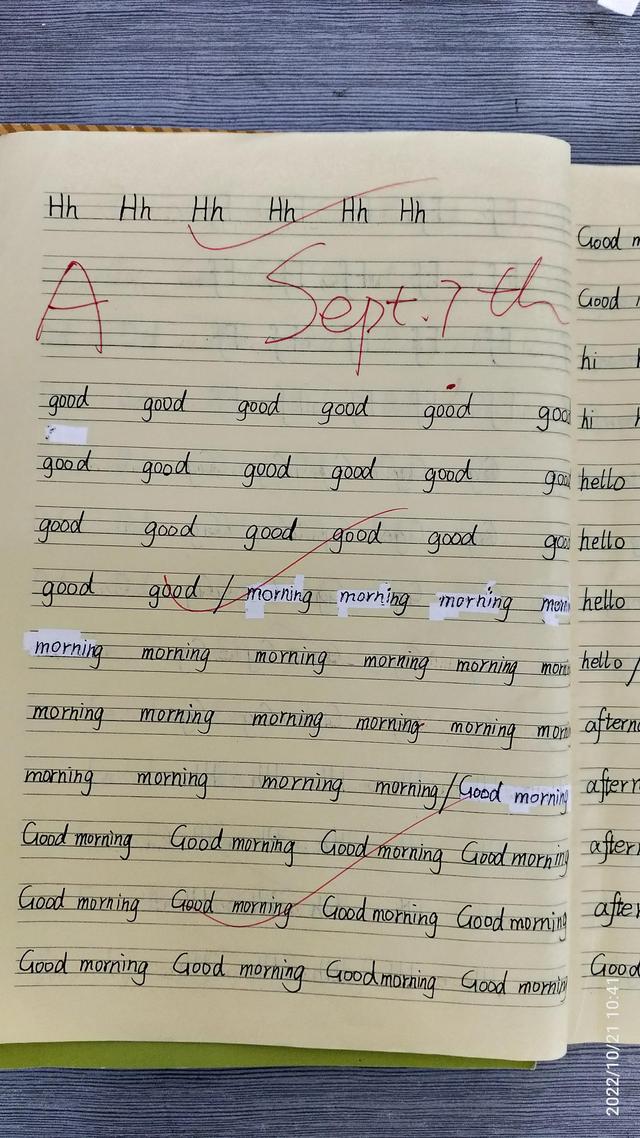 Hh Hh Hh Hh Hh Hh
A Sept. 7th
good good good good good goo
good good good good good goo
good good good good good goo
good good / morning morning morning morn
morning morning morning morning morning morn
morning morning morning morning morning morn
morning morning morning morning / Good morning
Good morning Good morning Good morning Good morning
Good morning Good morning Good morning Good morning
Good morning Good morning Good morning Good morning
Good m
Good
hi
hi
hello
hello
hello
hello /
afterno
after
after
after
Good
2022/10/21 10:41